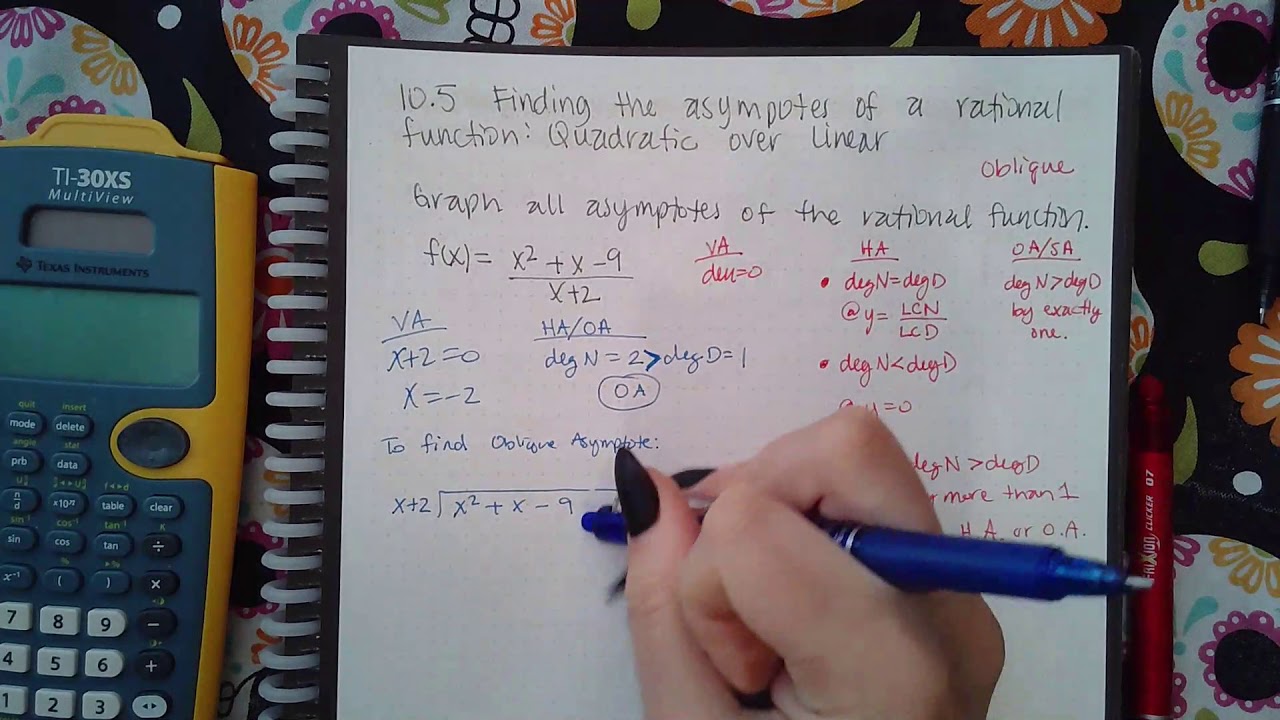 10.5 Finding the asymptotes of a rational
function: Quadratic over linear
Oblique
Graph all asymptotes of the rational function.
f(x) = x² + x - 9 / x+2
VA
den=0
HA
• degN=degD
@ y = LCN / LCD
• degN<degD
=0
degN>degD
more than 1
H.A. or O.A.
OA/SA
degN>degD
by exactly
one.
VA
x+2=0
x=-2
HA/OA
degN = 2 > degD = 1
OA
To find Oblique Asymptote:
x+2 x² + x - 9
TI-30XS
MultiView
TEXAS INSTRUMENTS
quit insert
mode delete
angle stat
prb data
n/d ×10ⁿ table clear
sin⁻¹ cos⁻¹ tan⁻¹ K
sin cos tan ÷
x⁻¹ ( ) ×
7 8 9 −
4 5 6 +
1 2 3
FRIXION CLICKER 07